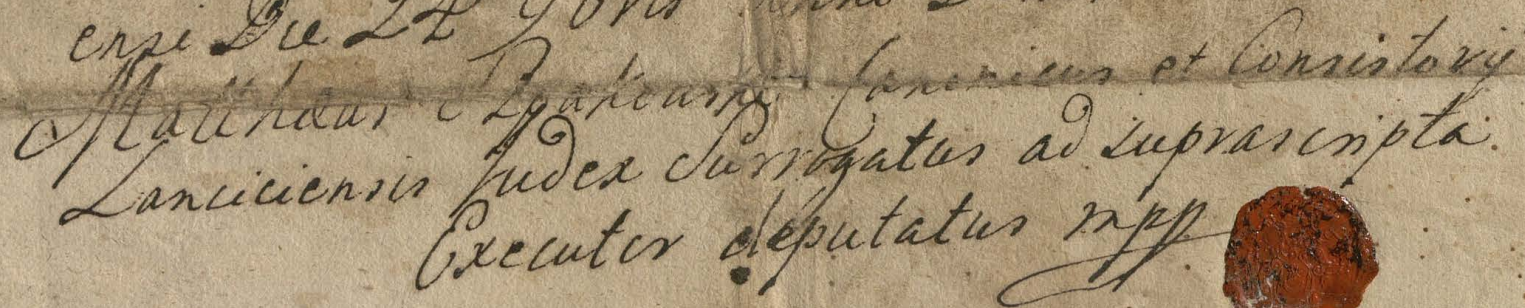 ensi Die 24 9bris Anno
Matthæus Canonicus et Consistorij
Lanciciensis Judex Surrogatus ad suprascripta
Executor deputatus mpp